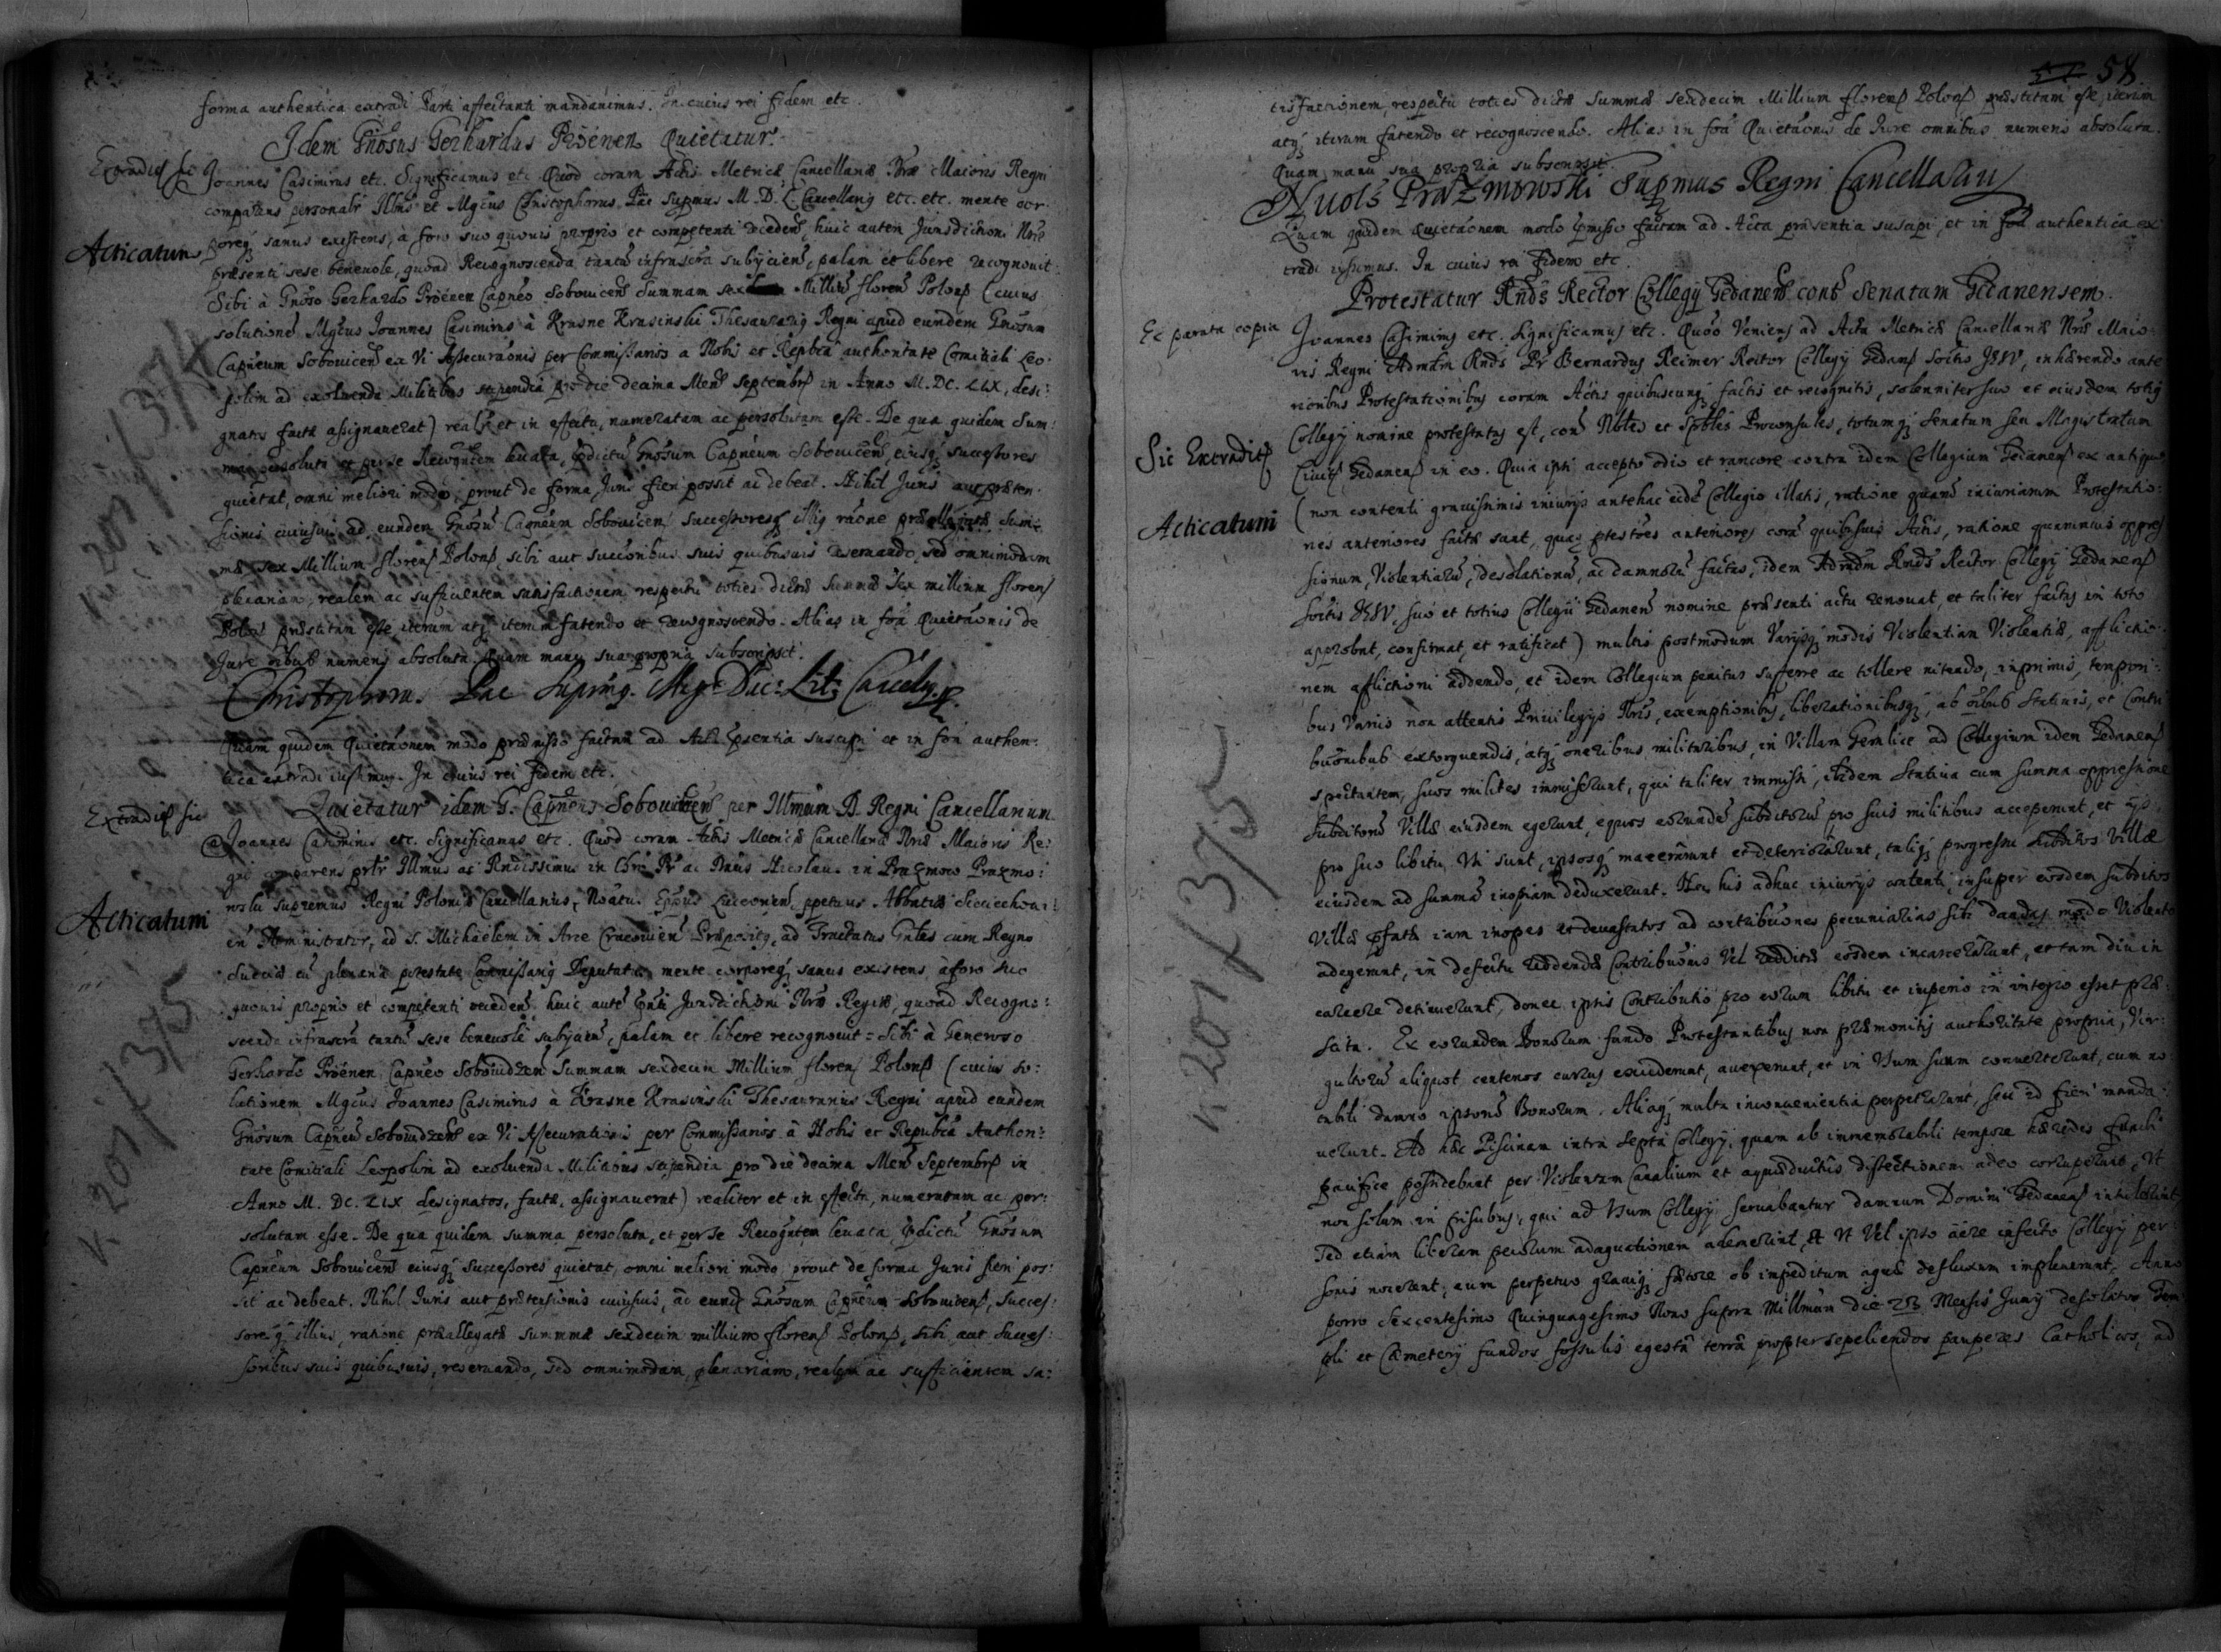 forma authentica extradi Parti affectanti mandavimus. In cuius rei fidem etc.
Idem Gnosus Gerhardus Pröenen Quietatur.
Extradit sic
Joannes Casimirus etc. Significamus etc. Quod coram Actis Metrices Cancellariæ Nræ Maioris Regni
comparens personalr Illmus et Mgcus Christophorus Pac Supmus M. D. L. Cancellarig etc. etc. mente cor:
Acticatum
poreq sanus existens, à foro suo quovis proprio et competenti recedens, huic autem Jurisdictioni Nræ
præsenti sese benevole, quoad Recognoscenda tantum infrascra subyciens, palam et libere recognovit:
Sibi à Gnoso Gerhardo Pröenen Capneo Sobovicens Summam sex Millium floren Polon (cuius
solutione Mgcus Joannes Casimirus à Krasne Krasinski Thesaurarig Regni apud eundem Gnosum
Capneum Sobovicens ex Vi Assecuraonis per Commissarios a Nobis et Repbca authoritate Comitiali Leo:
polim ad exolvenda Militibus stipendia pro die decima Mens Septembr in Anno M. DC. LIX, desi:
gnatis facta assignaverat) realr et in effectu, numeratam ac persolutam esse. De qua quidem Sum:
ma persoluta et per se Recognitem levata, pdictum Gnosum Capneum Sobovicens, eiusq successores
quietat, omni meliori modo, prout de forma Juris fieri possit ac debeat. Nihil Juris aut præten:
sionis cuiusvis ad eundem Gnosum Capneum Sobovicens Successoresq illig raone præallegatæ Sum:
mæ sex Millium floren Polon, sibi aut succoribus suis quibusvis reservando, sed omnimodam
plenariam, realem ac sufficientem satisfactionem respectu toties dictæ Summæ Sex millium floren
Polon præstitam esse, iterum atq iterum fatendo et recognoscendo. Alias in foa Quietaonis de
Jure oibus numeris absoluta. Quam manu sua propria subscripsit.
Christophorus Pac Supmg. Mag: Duc: Lit: Cancelg
Quam quidem Quietaonem modo præmisso factam ad Acta psentia suscipi et in foa authen:
tica extradi iussimus. In cuius rei fidem etc.
Quietatur idem G. Capneus Sobovicens per Illmum D. Regni Cancellarium
Extradit sic
Joannes Casimirus etc. Significamus etc. Quod coram Actis Metrices Cancellariæ Nræ Maioris Re:
gni comparens prlr Illmus ac Rndissimus in Chro Pr ac Dnus Nicolaus in Prazmow Prazmo:
Acticatum
wski Supremus Regni Poloniæ Cancellarius, Noatus Eppus Luceoriens, ppetuus Abbatiæ Siecechovi:
en Administrator, ad S. Michaëlem in Arce Cracovien Præpositg, ad Tractatus Gnles cum Regno
Sueciæ cu plenaria potestate Commissarig Deputatus mente corporeq sanus existens à foro suo
quovis proprio et competenti recedens, huic aute pnti Jurisdictioni Nræ Regiæ, quoad Recogno:
scenda infrascra tantu sese benevole subyciens, palam et libere recognovit = Sibi à Generoso
Gerhardo Pröenen Capneo Sobowidzens Summam sexdecim Millium floren Polon (cuius so:
lutionem Mgcus Joannes Casimirus à Krasne Krasinski Thesaurarius Regni apud eundem
Gnosum Capneu Sobowidzens ex Vi Assecurationis per Commissarios à Nobis et Repubca Authori:
tate Comitiali Leopolim ad exolvenda Militibus stipendia pro die decima Mens Septembr in
Anno M. DC. LIX designatos, facta, assignaverat) realiter et in effectu, numeratam ac per:
solutam esse. De qua quidem summa persoluta, et per se Recogntem levata pdictu Gnosum
Capneum Sobovicens eiusq Successores quietat, omni meliori modo prout de forma Juris fieri pos:
sit ac debeat. Nihil Juris aut prætensionis cuiusvis, ad eund Gnosum Capneum Sobovicens, Succes:
soresq illius, ratione præallegatæ summæ sexdecim millium floren Polon, sibi aut Succes:
soribus suis quibusvis, reservando, sed omnimodam, plenariam, realem ac sufficientem sa:
K 201/374
K 201/375
58
tisfactionem, respectu toties dictæ Summæ sexdecim Millium floren Polon præstitam esse, iterum
atq iterum fatendo et recognoscendo. Alias in foa Quietaonis de Jure omnibus numeris absoluta.
Quam manu sua propria subscripsit.
Nuols Prazmowski Supmus Regni Cancellariu
Quam quidem Quietaonem modo pmisso factam ad Acta præsentia suscipi, et in foa authentica ex
tradi iussimus. In cuius rei fidem etc.
Protestatur Rnds Rector Collegy Gedanens cont Senatum Gedanensem.
Ec parata copia
Joannes Casimirus etc. Significamus etc. Quod Veniens ad Acta Metrices Cancellariæ Nræ Maio:
ris Regni Admdm Rnds Pr Bernardus Reimer Rector Collegy Gedans Socitis JESV, inhærendo ante
rioribus Protestationibus coram Actis quibuscunq factis et recognitis, solenniter suo et eiusdem totig
Sic Extradit
Collegy nomine protestatus est, con Nobles et Spbles Proconsules, totumq Senatum seu Magistratum
Civit Gedanens in eo. Quia ipsi accepto odio et rancore contra idem Collegium Gedanens ex antiquo
Acticatum
(non contenti gravissimis iniurijs antehac eide Collegio illatis, ratione quaru iniuriarum Protestatio:
nes anteriores factæ sunt, quas ptestaes anteriores cora quibusvis Actis, ratione quaruncvis oppres
sionum, Violentiaru, desolationu, ac damnoru factas, idem Admdm Rnds Rector Collegy Gedanens
Socitis JESV, suo et totius Collegii Gedanens nomine præsenti actu renovat, et taliter factas in toto
approbat, confirmat, et ratificat) multis postmodum Varijsq modis Violentiam Violentiæ, afflictio:
nem afflictioni addendo, et idem Collegium penitus sufferre ac tollere nitendo, inprimis, tempori:
bus Varijs non attentis Privilegijs Nris, exemptionibus, liberationibusq, ab oibus Stativis, et Contri
buonibus extorquendis, atq oneribus militaribus, in Villam Gemlice ad Collegium idem Gedanens
spectantem, suos milites immiserunt, qui taliter immissi, ibidem Stativa cum summa oppressione
Subditoru Villæ eiusdem egerunt, equos eorunde subditoru pro suis militibus acceperunt, et ijs
pro suo libitu Vsi sunt, ipsosq macerarunt et deteriorarunt, taliq progressu subditos Villæ
eiusdem ad summa inopiam deduxerunt. Non his adhuc iniurijs contenti, insuper eosdem subditos
Villæ pfatæ iam inopes et devastatos ad contribuones pecuniarias sibi dandas modo Violento
adegerunt, in defectu reddendæ Contribuonis Vel redditæ eosdem incarcerarunt, et tam diu in
carcere detinuerunt, donec ipsis Contributio pro eorum libitu et imperio in integro esset præ:
stita. Ex eorundem Bonorum fundo Protestantibus non præmonitis authoritate propria, Vir:
gultoru aliquot centenos currus exciderunt, avexerunt, et in Vsum suum converterunt, cum no
tabili damno ipsoru Bonorum. Aliaq multa inconvenientia perpetrarunt, seu id fieri manda:
verunt. Ad hæc Piscinam intra septa Collegij, quam ab immemorabili tempore hæredes fundi
pacifice possidebant per Violentam Canalium et aquæductus dissectionem adeo corruperunt, Vt
non solum in piscibus, qui ad Vsum Collegij servabantur damnum Domini Gedanens intulerint
Sed etiam liberam pecorum adaquationem ademerint, & Vt Vel ipso aëre infecto Collegij per:
sonis nocerent, eum perpetuo graviq fætore ob impeditum aquæ defluxum impleverunt. Anno
porro Sexcentesimo Quinquagesimo Nono supra Millmum die 23 Mensis Junij desolatos Tem
pli et Cæmeterij fundos fossulis egesta terra propter sepeliendos pauperes Catholicos, ad
K 201/375